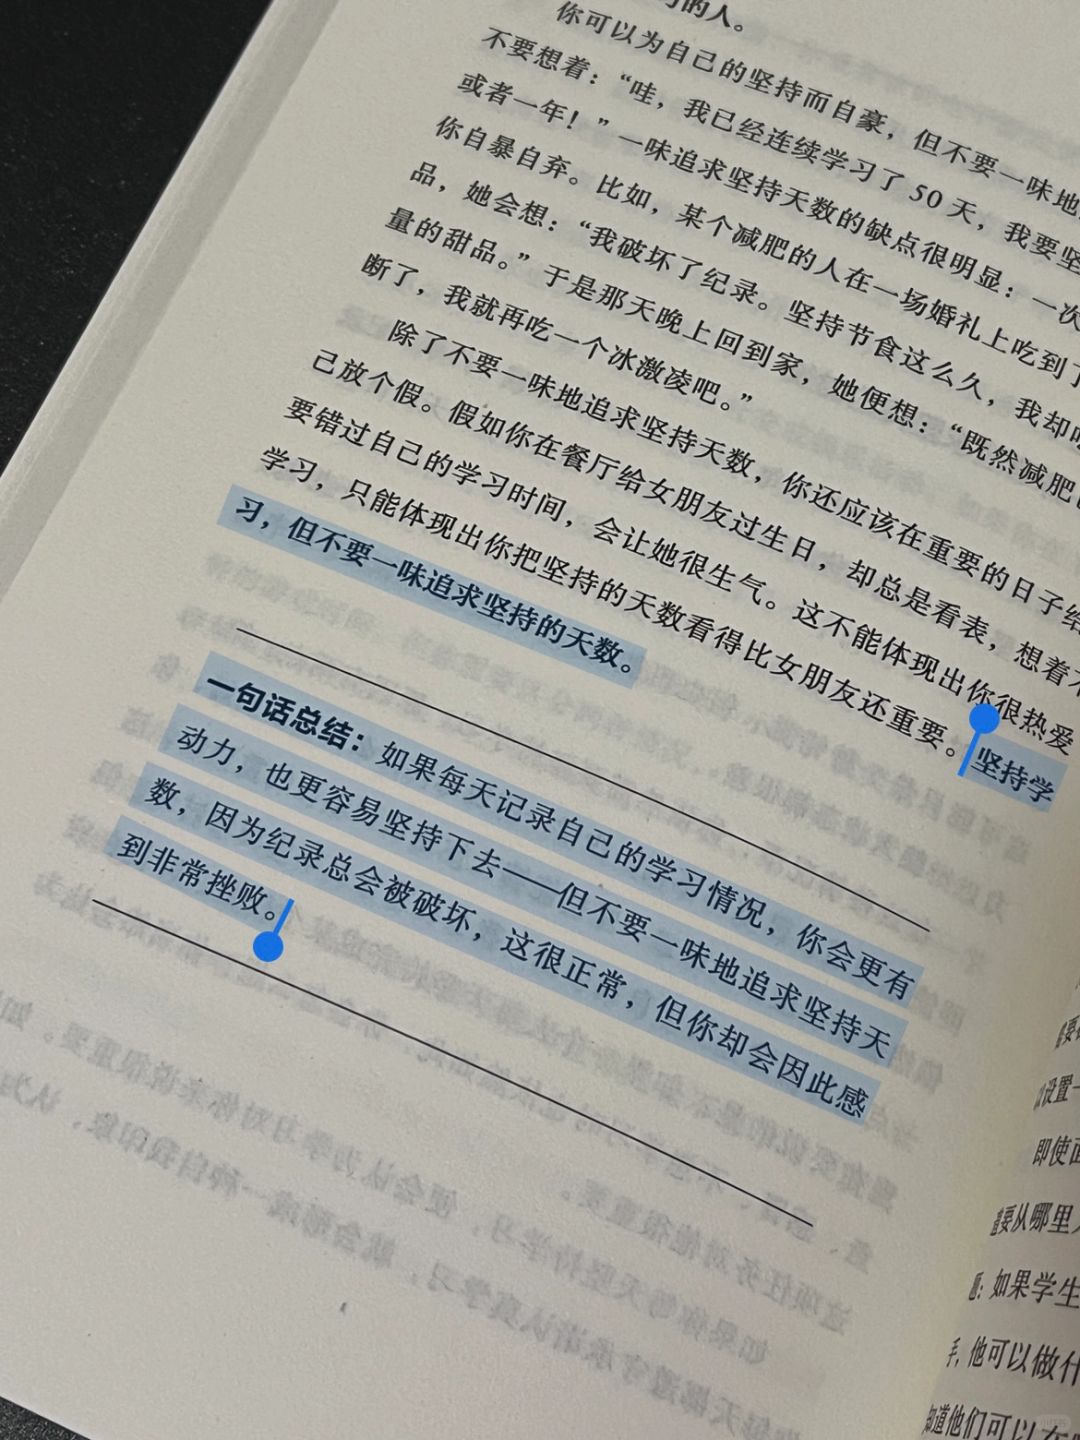 的人。
你可以为自己的坚持而自豪，但不要一味地
不要想着：“哇，我已经连续学习了 50 天，我要坚
或者一年！”一味追求坚持天数的缺点很明显：一次
你自暴自弃。比如，某个减肥的人在一场婚礼上吃到了
品，她会想：“我破坏了纪录。坚持节食这么久，我却吃
量的甜品。”于是那天晚上回到家，她便想：“既然减肥
断了，我就再吃一个冰激凌吧。”
除了不要一味地追求坚持天数，你还应该在重要的日子给
己放个假。假如你在餐厅给女朋友过生日，却总是看表，想着不
要错过自己的学习时间，会让她很生气。这不能体现出你很热爱
学习，只能体现出你把坚持的天数看得比女朋友还重要。坚持学
习，但不要一味追求坚持的天数。
一句话总结：如果每天记录自己的学习情况，你会更有
动力，也更容易坚持下去——但不要一味地追求坚持天
数，因为纪录总会被破坏，这很正常，但你却会因此感
到非常挫败。
需要
以设置一
即使面
道要从哪里
题：如果学生
手，他可以做什
知道他们可以在